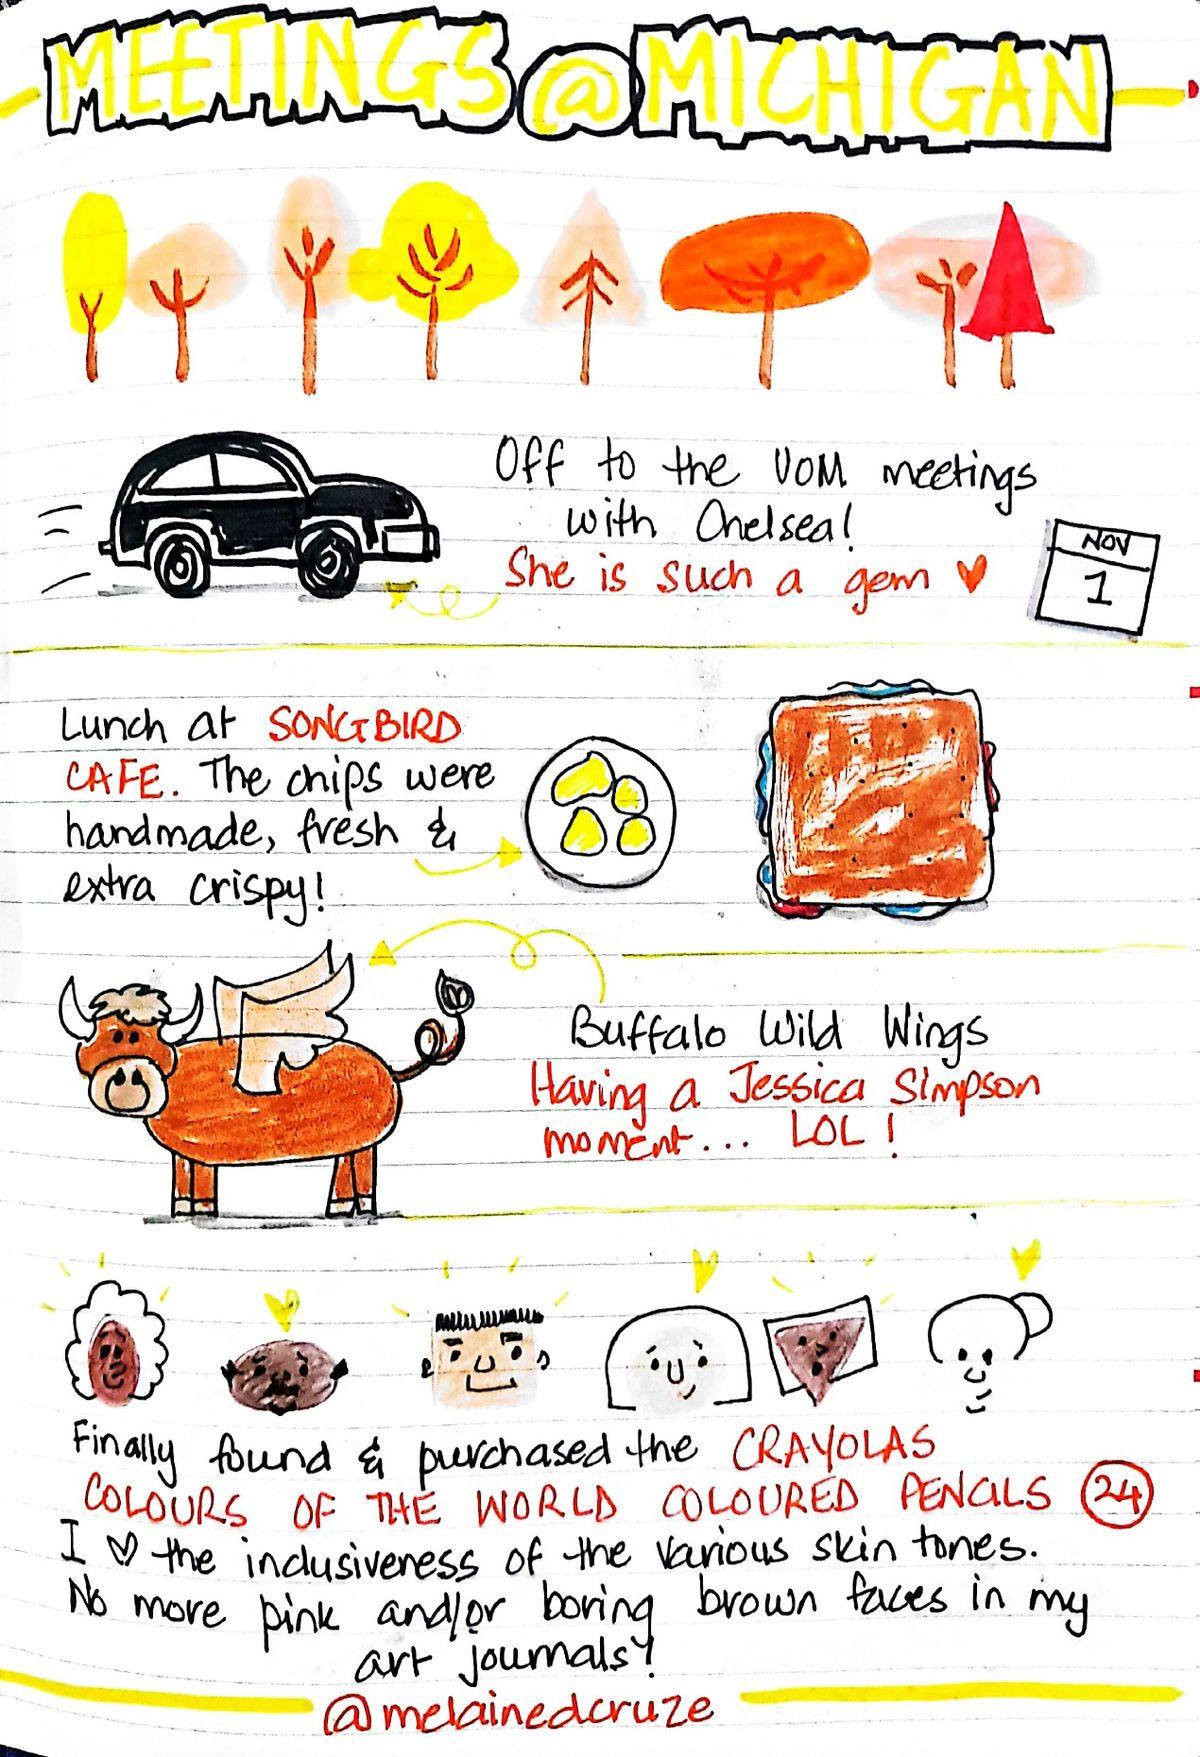 MEETINGS@MICHIGAN
Off to the UOM meetings
with Chelsea!
She is such a gem ♥
NOV
1
Lunch at SONGBIRD
CAFE. The chips were
handmade, fresh &
extra crispy!
Buffalo Wild Wings
Having a Jessica Simpson
moment... LOL!
Finally found & purchased the CRAYOLAS
COLOURS OF THE WORLD COLOURED PENCILS 24
I ♡ the inclusiveness of the various skin tones.
No more pink and/or boring brown faces in my
art journals!
@melainedcruze